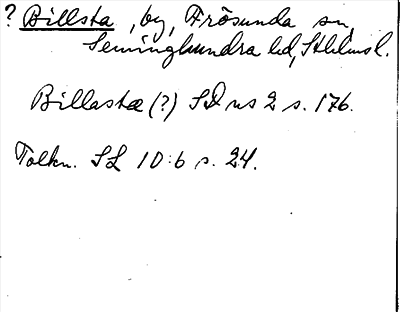 ? Billsta, by, Frösunda sn,
Seminghundra hd, Sthlmsl.
Billastæ (?) SD ns 2 s. 176.
Tolkn. SL 10:6 s. 24.